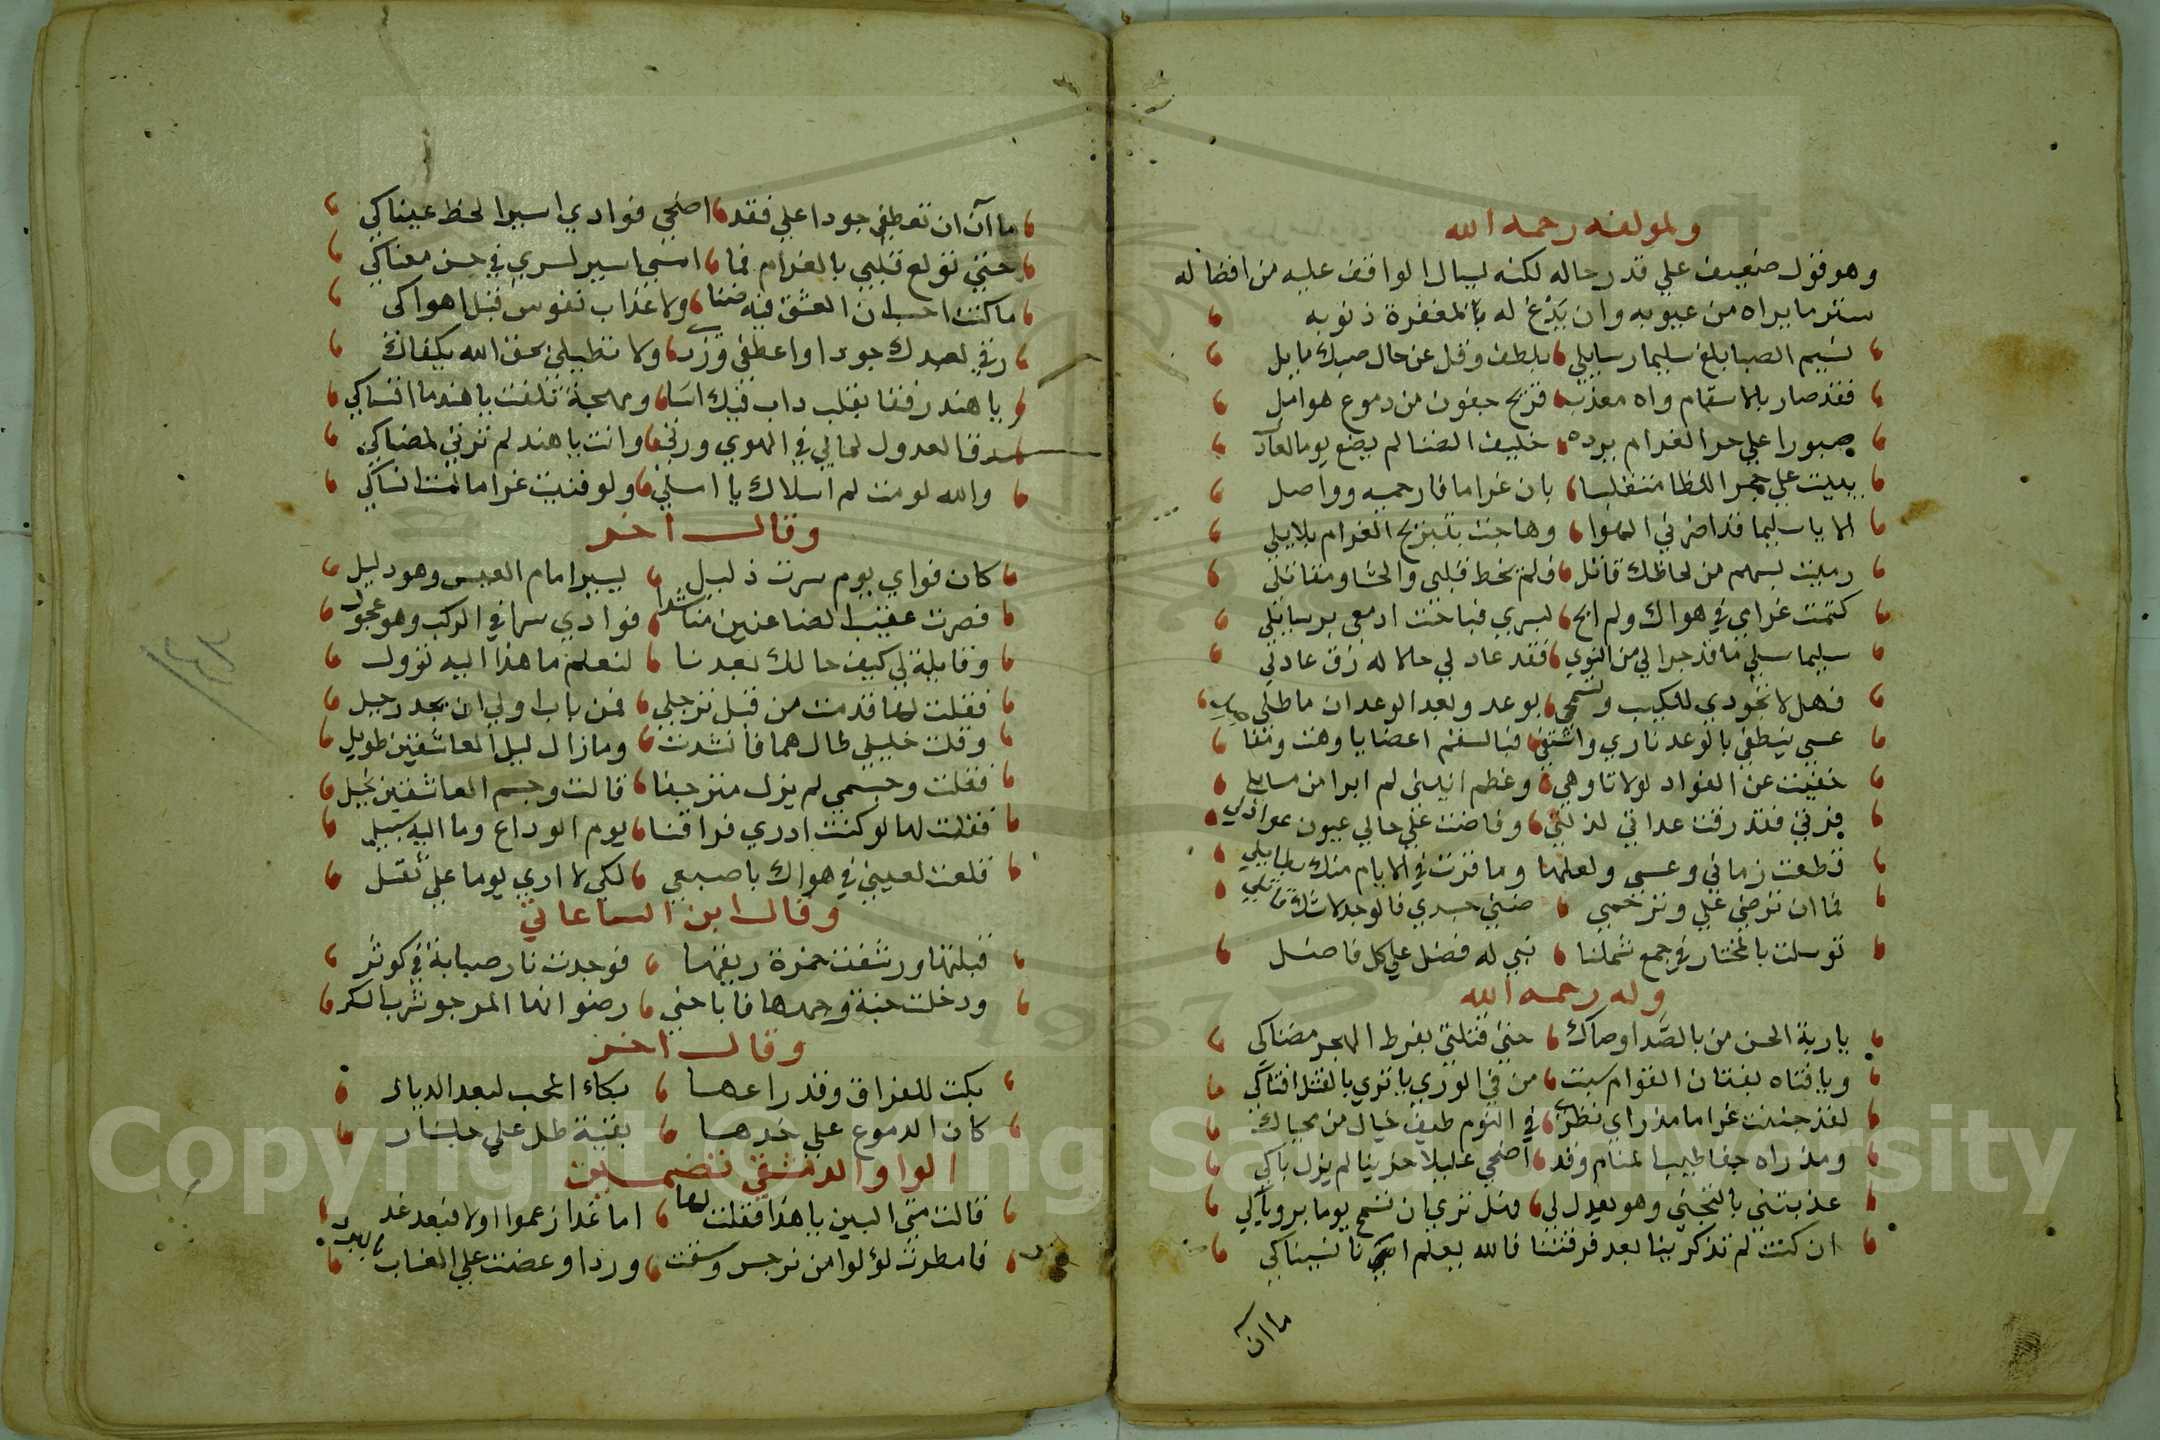 ولمولفه رحمه الله
وهو قول ضعيف علي قدر حاله لكنه يسال الواقف عليه من افضاله
ستر ما يراه من عيوبه وان يدع له بالمغفرة ذنوبه
نسيم الصبا بلغ سليما رسايلي بلطف وقل عن حال صبك مايل
فقد صار بالاسقام واه معذب قريح جفون من دموع هوامل
صبورا علي حر الغرام برده حليف الضنا لم يضع يوما
يبيت علي جمر اللظا متقلبا بان غراما فارحميه وواصل
الا يا سليما قد اضر ني الهوا وهاجت بتبريح الغرام بلابلي
رميت بسهم من لحاظك قاتل فلم يخط قلبي والحشا ومقاتلي
كتمت غرامي في هواك ولم ابح بسري فباحت ادمعي برسايلي
سليما سلي ما قد جرا لي من النوي فقد عاد لي حالا له رق عاذلي
فهل لا تجودي للكييب وتسمحي بوعد وبعد الوعد ان ماطلي
عسي ينطفي بالوعد ناري واشتفي فبالسقم اعضايا وهت
خفيت عن العواد لولا تاوهي وعظم انيني لم ابرا من مسايلي
فرقي فقد رقت عداتي لذلتي وفاضت علي حالي عيون عواذلي
قطعت زماني وعسي ولعلها وما فزت في الايام منك بطايل
فما ان ترضي علي وترحمي ضني جسدي فالوجد لا شك قاتلي
توسلت بالمختار في جمع شملنا نبي له فضل علي كل فاضل
وله رحمه الله
يا ربة الحسن من بالصد اوصاك حتي قتلتي بفرط الهجر مضناكي
ويا فتاه بفتان القوام سبت من في الوري يا تري بالقتل افتاكي
لقد جننت غراما مذ راي نظري في النوم طيف خيال من محياك
ومذ راه جفا طيب المنام وقد اضحي عليلا حزينا لم يزل باكي
عذبتيني بالتجني وهو يعدل لي فهل تري ان تسمح يوما برؤياكي
ان كنت لم تذكرينا بعد فرقتنا فالله يعلم انا نسيناكي
ما آن
ما آن ان تعطفي جودا علي فقد اضحي فوادي اسيرا لحظ عيناكي
حتي تولع قلبي بالغرام فما امسي اسير لسري في حسن معناكي
ما كنت احسب ان العشق فيه ضنا ولا عذاب نفوس قبل اهواكي
رقي لعبدك جودا واعطفي وزري ولا تطيلي بحق الله يكفاك
يا هند رفقا بقلب داب فيك اسا ومهجة تلفت يا هند ما اقساكي
رق العدول لحالي في الهوي ورثي وانت يا هند لم ترثي لمضناكي
والله لو مت لم اسلاك يا املي ولو فنيت غراما لست انساكي
وقال اخر
كان فوادي يوم سرت ذليل يسير امام العيس وهو دليل
فصرت عقيب الضاعنين مناشدا فوادي سرا في الركب وهو عجول
وقايلة لي كيف حالك بعدنا لتعلم ما هذا اليه تؤول
فقلت لها قد مت من قبل ترحلي فمن باب اولي ان يجد رحيل
وقلت خليلي طال هما فانشدت وما زال ليل العاشقين طويل
فقلت وجسمي لم يزل مترجفا قالت وجسم العاشقين نحيل
فقلت لها لو كنت ادري فراقنا يوم الوداع وما اليه سبيل
قلعت لعيني في هواك باصبعي لكي لا اري يوما علي ثقيل
وقال ابن الساعاتي
قبلتها ورشفت خمرة ريقها فوجدت نار صبابة في كوثر
ودخلت جنة وجهها فاباحني رضوانها المرجو شرب المسكر
وقال اخر
بكت للفراق وقد راعها بكاء المحب لبعد الديار
كان الدموع علي خدها بقية طل علي جلنار
الواوا الدمشقي تضمين
قالت متي البين يا هذا فقلت لها اما غدا زعموا اولا فبعد غد
فامطرت لؤلوا من نرجس وسقت وردا وعضت علي العناب بالبرد